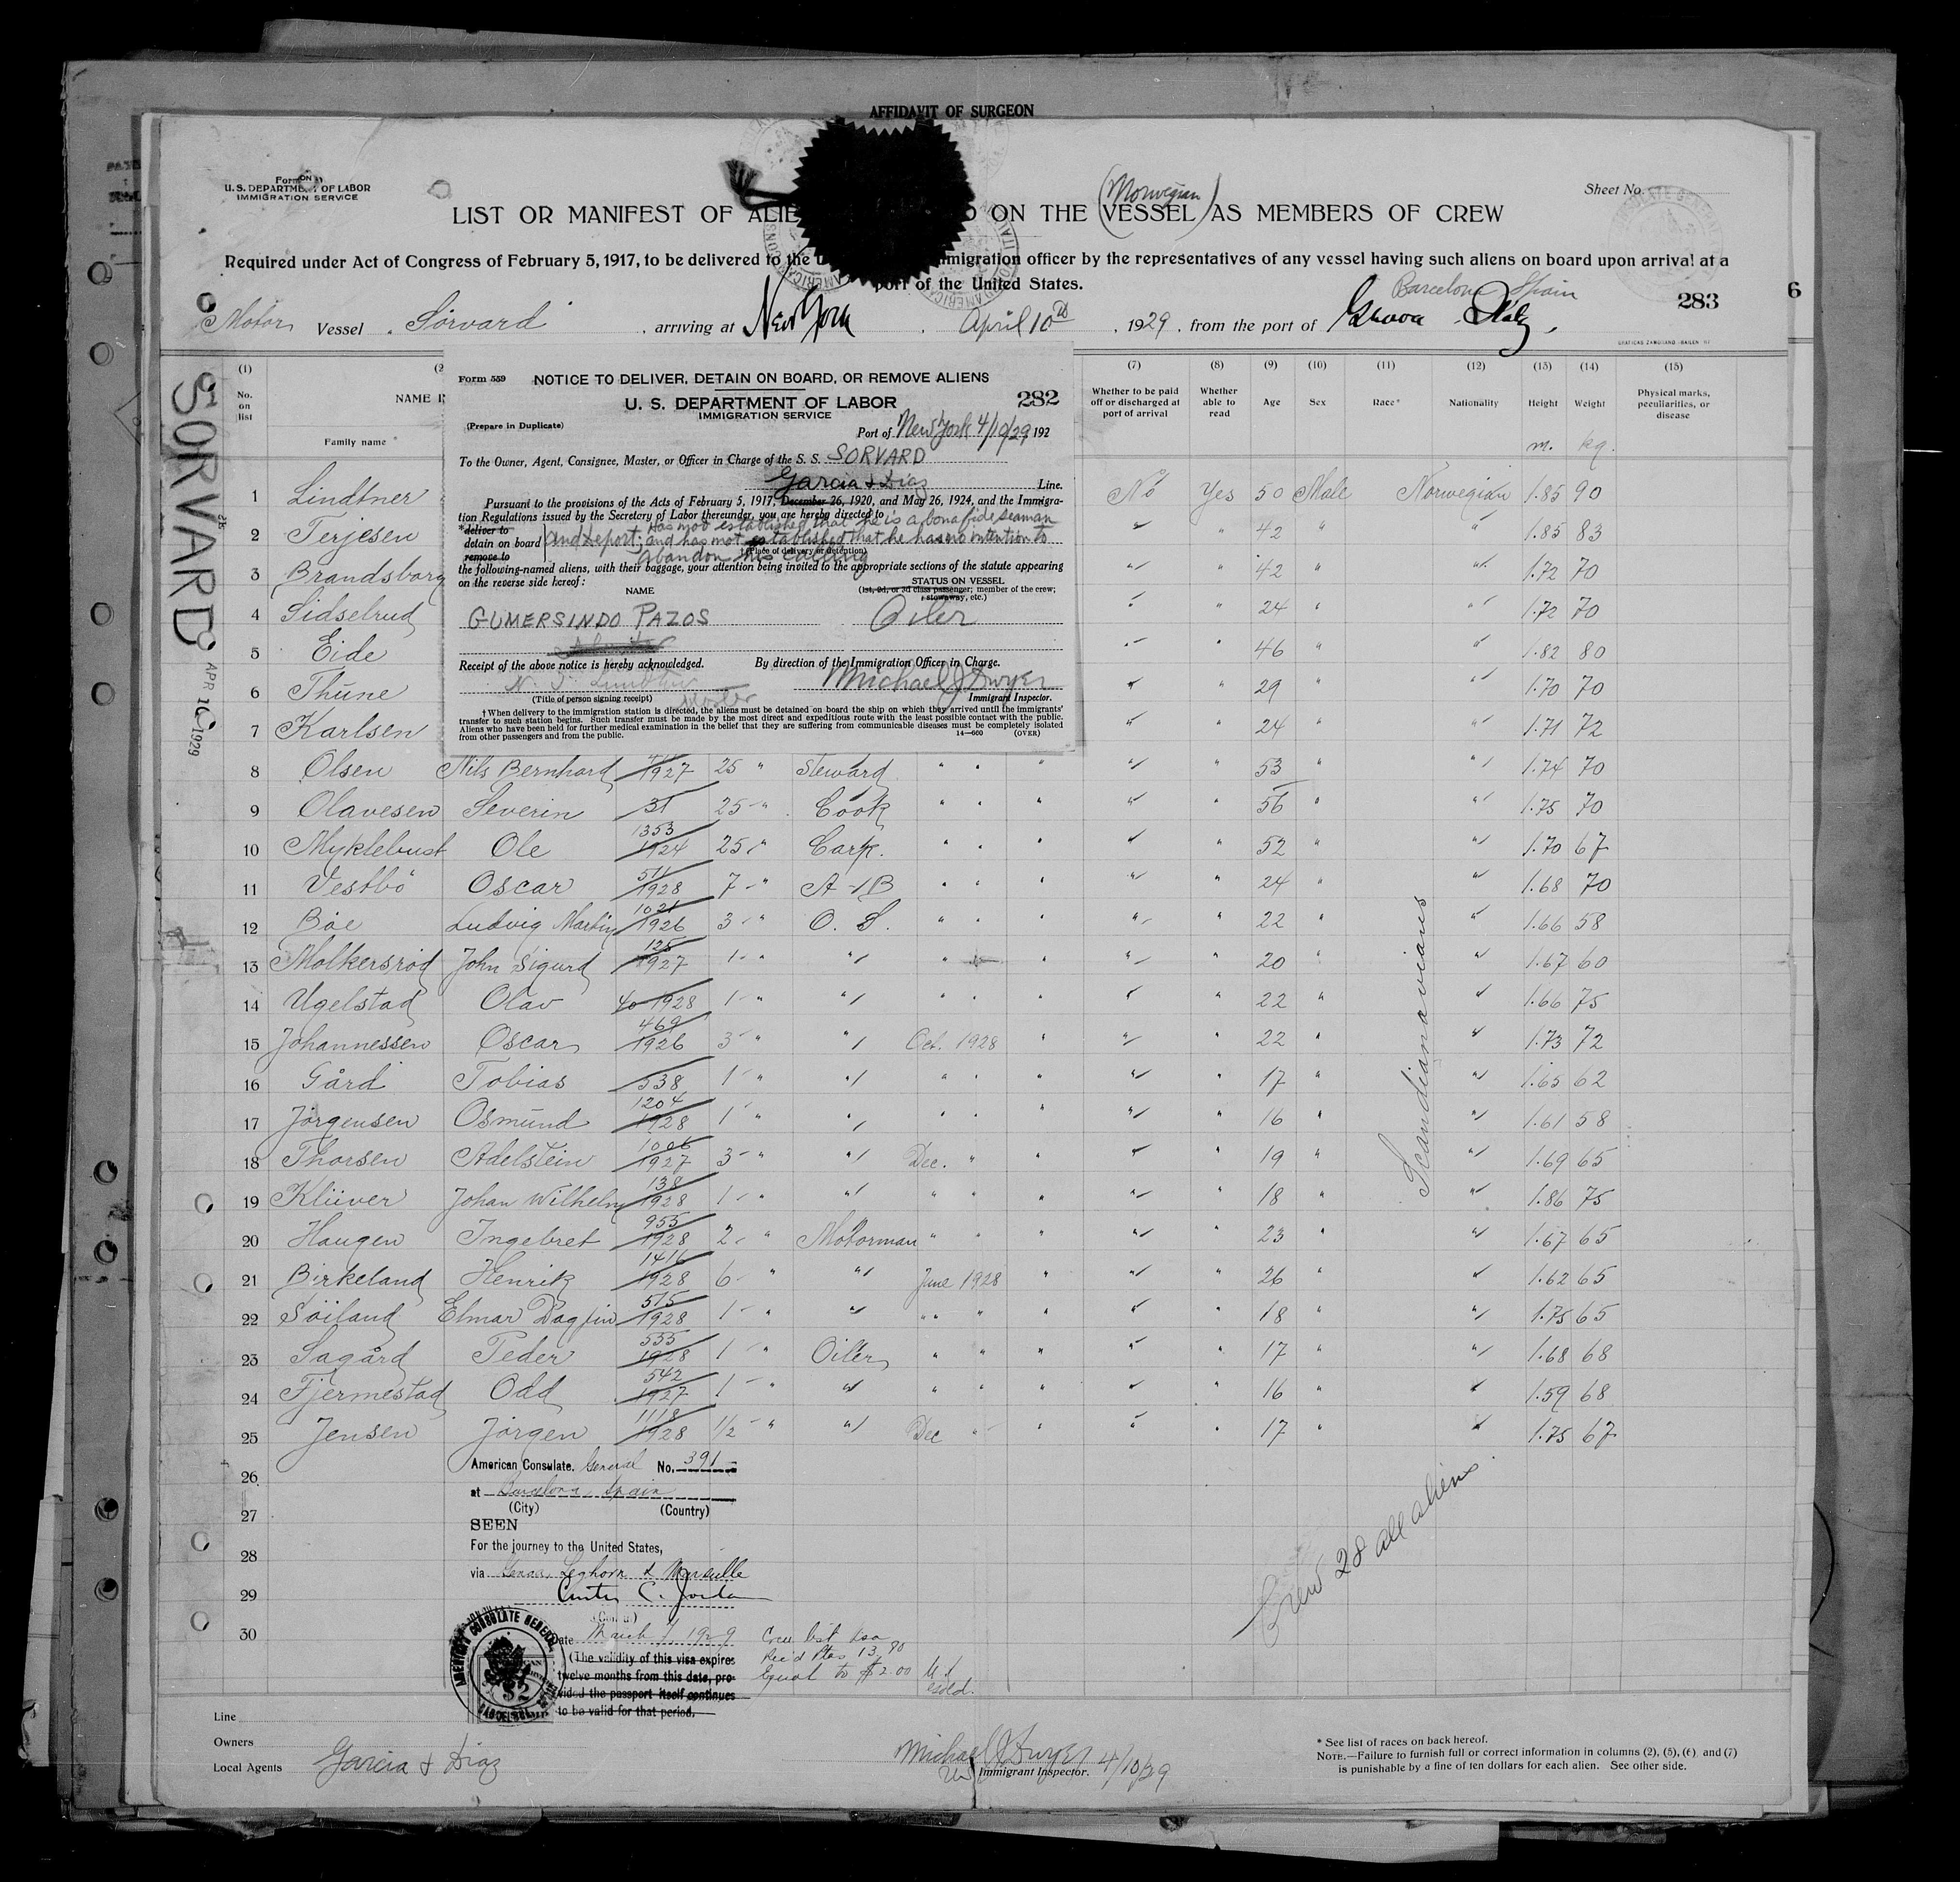 AFFIDAVIT OF SURGEON
Form
U. S. DEPARTMENT OF LABOR
IMMIGRATION SERVICE
Sheet No.
(Norwegian)
LIST OR MANIFEST OF ALIE ON THE VESSEL AS MEMBERS OF CREW
Required under Act of Congress of February 5, 1917, to be delivered to the U immigration officer by the representatives of any vessel having such aliens on board upon arrival at a
port of the United States.
Barcelona Spain
283
6
Motor Vessel Sörvard, arriving at New York, April 10th, 1929, from the port of Genova Italy,
GRAFICAS ZAMORANO.-BAILEN 117
SORVARD
APR 10 1929
(1) (2 (7) (8) (9) (10) (11) (12) (13) (14) (15)
No. on list
NAME I
Family name
Whether to be paid off or discharged at port of arrival
Whether able to read
Age
Sex
Race*
Nationality
Height
Weight
Physical marks, peculiarities, or disease
m. kg.
Form 559 NOTICE TO DELIVER, DETAIN ON BOARD, OR REMOVE ALIENS
282
U. S. DEPARTMENT OF LABOR
IMMIGRATION SERVICE
(Prepare in Duplicate)
Port of New York 4/10/29, 192
To the Owner, Agent, Consignee, Master, or Officer in Charge of the S. S. SORVARD
Garcia & Diaz Line.
Pursuant to the provisions of the Acts of February 5, 1917, December 26, 1920, and May 26, 1924, and the Immigra-
tion Regulations issued by the Secretary of Labor thereunder, you are hereby directed to
Has not established that he is a bonafide seaman
*deliver to
detain on board and report; and has not established that he has no intention to
remove to
†(Place of delivery or detention)
abandon his calling
the following-named aliens, with their baggage, your attention being invited to the appropriate sections of the statute appearing
on the reverse side hereof:
STATUS ON VESSEL
NAME
(1st, 2d, or 3d class passenger; member of the crew;
stowaway, etc.)
GUMERSINDO PAZOS Oiler
Receipt of the above notice is hereby acknowledged. By direction of the Immigration Officer in Charge.
Michael J Dwyer
(Title of person signing receipt) Master Immigrant Inspector.
† When delivery to the immigration station is directed, the aliens must be detained on board the ship on which they arrived until the immigrants'
transfer to such station begins. Such transfer must be made by the most direct and expeditious route with the least possible contact with the public.
Aliens who have been held for further medical examination in the belief that they are suffering from communicable diseases must be completely isolated
from other passengers and from the public. 14—600 (OVER)
1 Lindtner No Yes 50 Male Norwegian 1.85 90
2 Terjesen " " 42 " " 1.85 83
3 Brandsborg " " 42 " " 1.72 70
4 Sidselrud " " 24 " " 1.72 70
5 Eide " " 46 " " 1.82 80
6 Thüne " " 29 " 1.70 70
7 Karlsen " 24 " 1.71 72
8 Olsen Nils Bernhard 1927 25 " Steward " " " " " 53 " 1.74 70
9 Olavesen Severin 31 25 " Cook " " " " " 56 " " 1.75 70
10 Myklebust Ole 1353/1924 25 " Carp. " " " " " 52 " " 1.70 67
11 Vestbö Oscar 511/1928 7 " A-B " " " " " 24 " " 1.68 70
12 Böe Ludvig Martin 1021/1926 3 " O. S. " " " " " 22 " " 1.66 58
13 Molkersröd John Sigurd 125/1927 1 " " " " " " 20 " " 1.67 60
14 Ugelstad Olav 40 1928 1 " " " " " " " 22 " " 1.66 75
15 Johannessen Oscar 469/1926 3 " " Oct. 1928 " " " 22 " " 1.73 72
16 Gård Tobias 538 1 " " " " " " " 17 " " 1.65 62
17 Jörgensen Osmünd 1204/1928 1 " " " " " " " 16 " " 1.61 58
18 Thorsen Adelstein 1006/1927 3 " " Dec. " " " " 19 " " 1.69 65
19 Klüver Johan Wilhelm 138/1928 1 " " " " " " " 18 " " 1.86 75
20 Haugen Ingebret 955/1928 2 " Motorman " " " " " 23 " " 1.67 65
21 Birkeland Henrik 1416/1928 6 " " June 1928 " " " 26 " " 1.62 65
22 Söiland Elmar Dagfin 515/1928 1 " " " " " " " 18 " " 1.75 65
23 Sagård Peder 535/1928 1 " Oiler " " " " " 17 " " 1.68 68
24 Fjermestad Odd 542/1927 1 " " " " " " " 16 " " 1.59 68
25 Jensen Jörgen 1118/1928 1/2 " " Dec " " " " 17 " " 1.75 67
Scandianavians
26
27
28
29
30
American Consulate. General No. 391
at Barcelona, Spain
(City) (Country)
SEEN
For the journey to the United States,
via Genoa, Leghorn & Marseille
Curtis C. Jordan
(Consul)
Date March 7, 1929
(The validity of this visa expires
twelve months from this date, pro-
vided the passport itself continues
to be valid for that period.
AMERICAN CONSULATE GENERAL
Crew list visa
Rec'd Ptas 13,80
Equal to $2.00 U.S.
Gold.
Crew 28 all aliens
Line
Owners
Local Agents Garcia & Diaz
Michael J Dwyer 4/10/29
US Immigrant Inspector.
* See list of races on back hereof.
NOTE.—Failure to furnish full or correct information in columns (2), (5), (6) and (7)
is punishable by a fine of ten dollars for each alien. See other side.